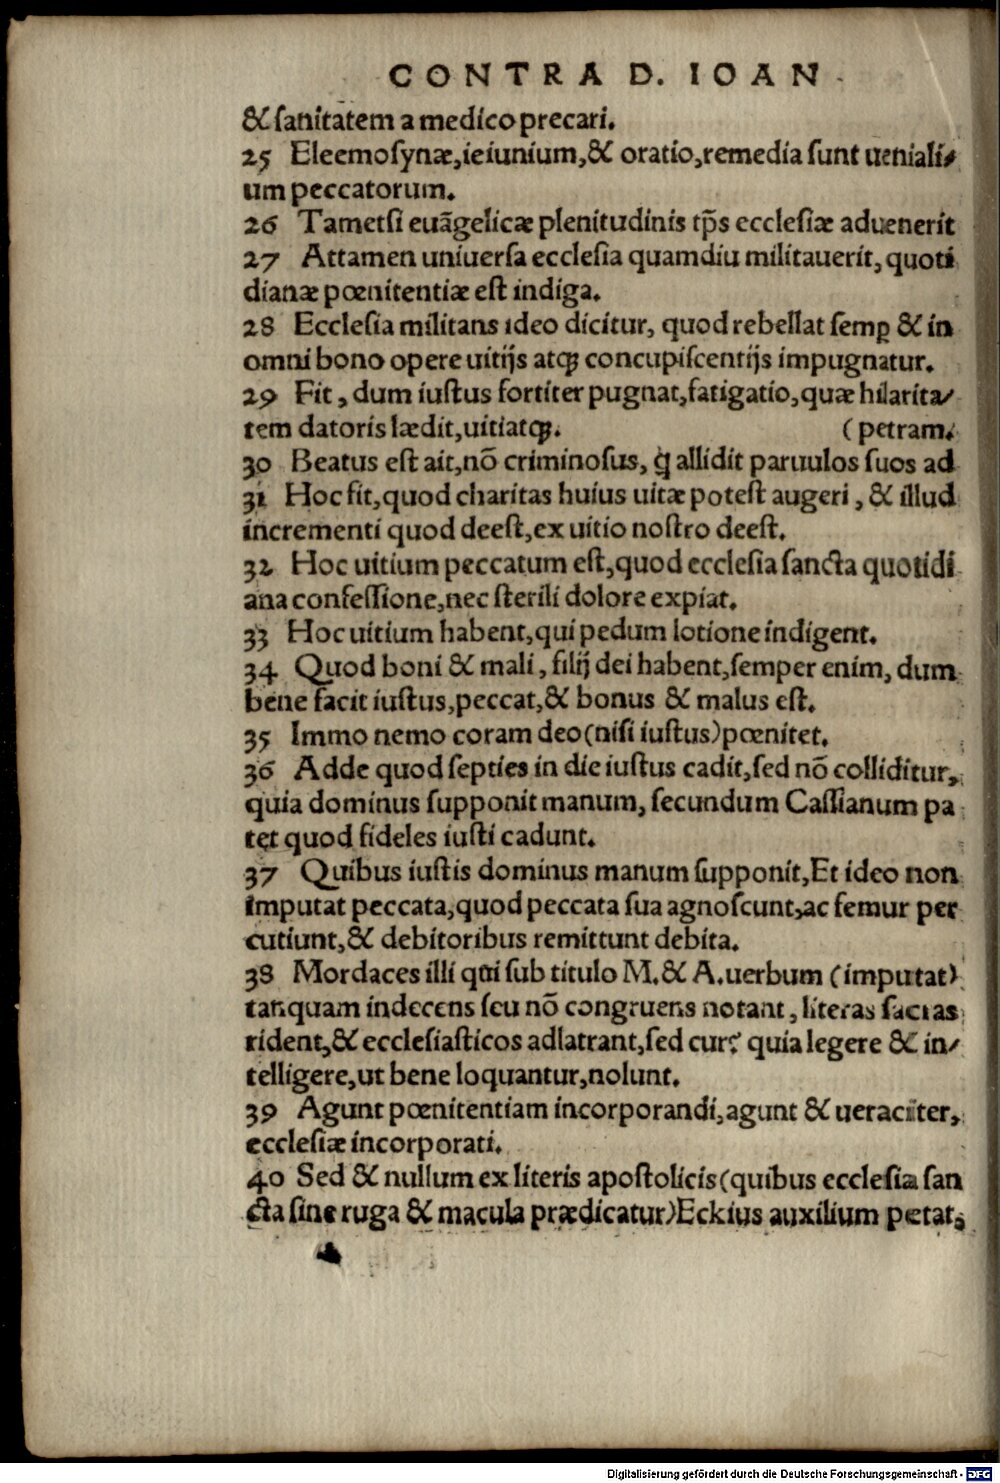 CONTRA D. IOAN
& sanitatem a medico precari.
25 Eleemosynæ, ieiunium, & oratio, remedia sunt ueniali-
um peccatorum.
26 Tametsi euãgelicæ plenitudinis tp̃s ecclesiæ aduenerit
27 Attamen uniuersa ecclesia quamdiu militauerit, quoti
dianæ pœnitentiæ est indiga.
28 Ecclesia militans ideo dicitur, quod rebellat semꝑ & in
omni bono opere uitijs atqꝫ concupiscentijs impugnatur.
29 Fit, dum iustus fortiter pugnat, fatigatio, quæ hilarita-
tem datoris lædit, uitiatqꝫ. (petram.
30 Beatus est ait, nõ criminosus, q̃ allidit paruulos suos ad
31 Hoc fit, quod charitas huius uitæ potest augeri, & illud
incrementi quod deest, ex uitio nostro deest.
32 Hoc uitium peccatum est, quod ecclesia sancta quotidi
ana confessione, nec sterili dolore expiat.
33 Hoc uitium habent, qui pedum lotione indigent.
34 Quod boni & mali, filij dei habent, semper enim, dum
bene facit iustus, peccat, & bonus & malus est.
35 Immo nemo coram deo (nisi iustus) pœnitet.
36 Adde quod septies in die iustus cadit, sed nõ colliditur,
quia dominus supponit manum, secundum Cassianum pa
tet quod fideles iusti cadunt.
37 Quibus iustis dominus manum supponit, Et ideo non
imputat peccata, quod peccata sua agnoscunt, ac femur per
cutiunt, & debitoribus remittunt debita.
38 Mordaces illi qui sub titulo M. & A. uerbum (imputat)
tanquam indecens seu nõ congruens notant, literas sacras
rident, & ecclesiasticos adlatrant, sed cur? quia legere & in-
telligere, ut bene loquantur, nolunt.
39 Agunt pœnitentiam incorporandi, agunt & ueraciter,
ecclesiæ incorporati.
40 Sed & nullum ex literis apostolicis (quibus ecclesia san
cta sine ruga & macula prædicatur) Eckius auxilium petat,
Digitalisierung gefördert durch die Deutsche Forschungsgemeinschaft - DFG